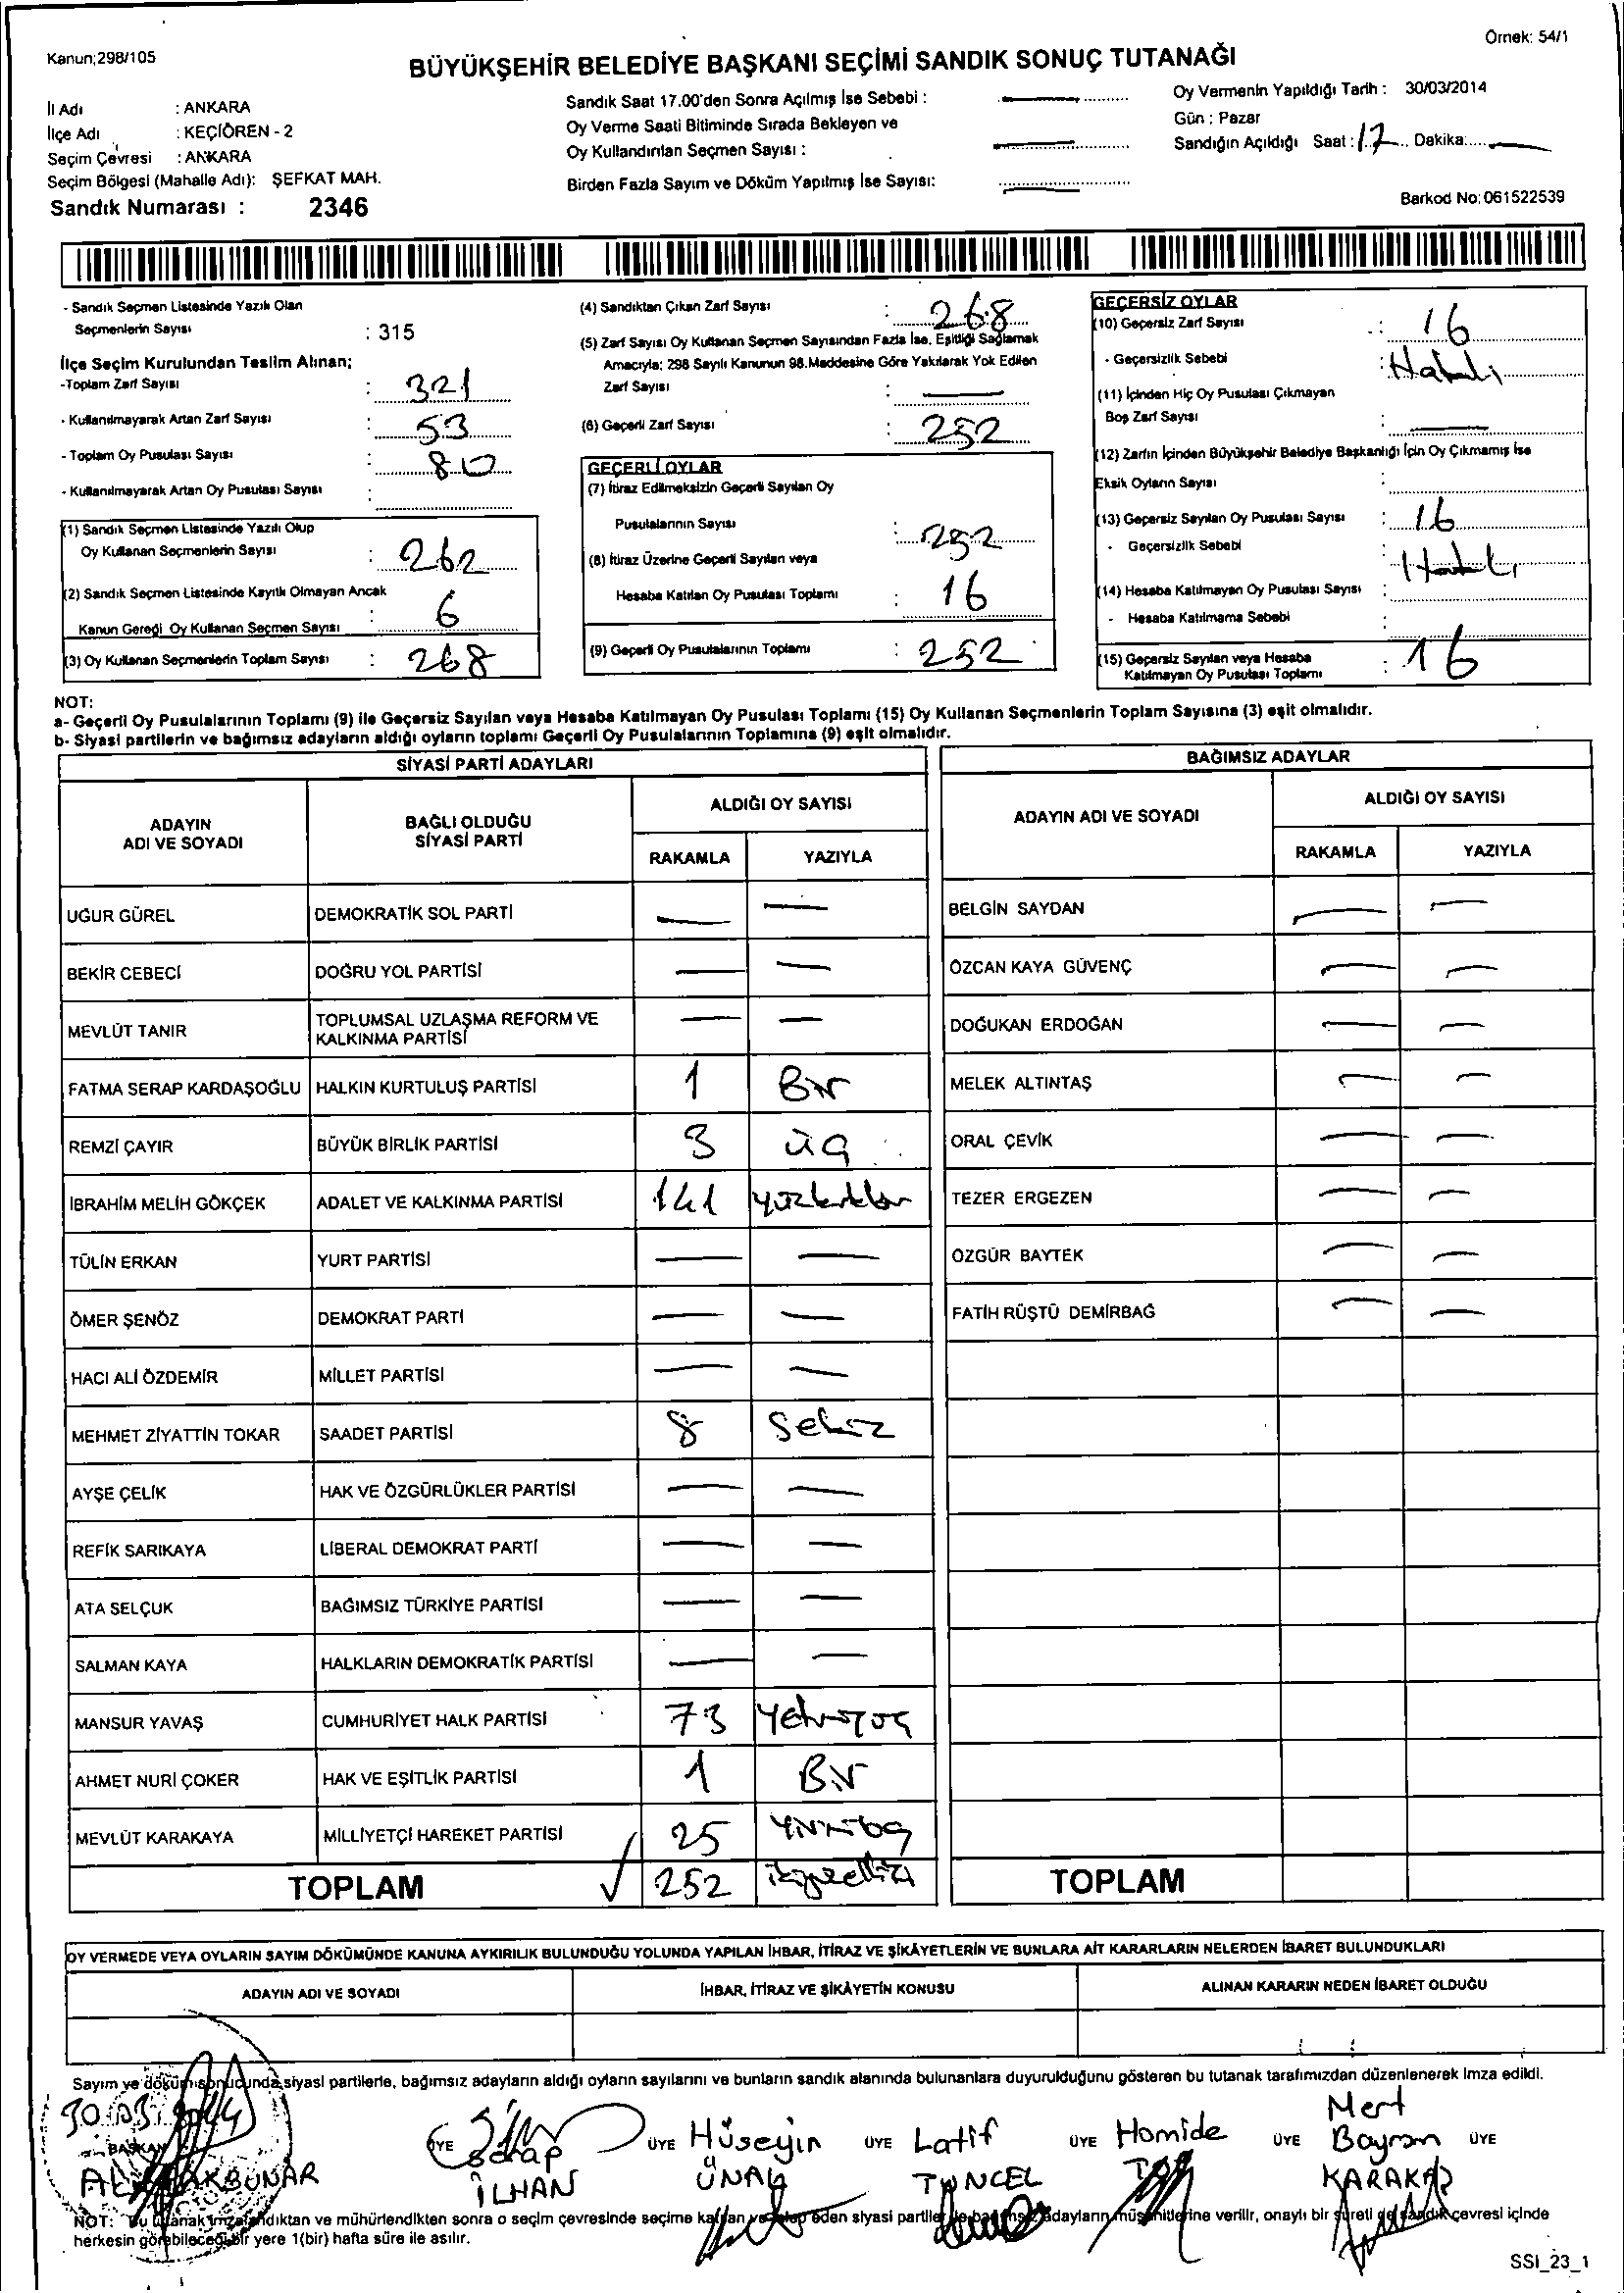 Kanun;298/105
Örnek: 54/1
BÜYÜKŞEHİR BELEDİYE BAŞKANI SEÇİMİ SANDIK SONUÇ TUTANAĞI
İl Adı : ANKARA
İlçe Adı : KEÇİÖREN - 2
Seçim Çevresi : ANKARA
Seçim Bölgesi (Mahalle Adı): ŞEFKAT MAH.
Sandık Numarası : 2346
Sandık Saat 17.00'den Sonra Açılmış İse Sebebi :
Oy Verme Saati Bitiminde Sırada Bekleyen ve
Oy Kullandırılan Seçmen Sayısı :
Birden Fazla Sayım ve Döküm Yapılmış İse Sayısı:
Oy Vermenin Yapıldığı Tarih : 30/03/2014
Gün : Pazar
Sandığın Açıldığı Saat : 17 Dakika:
Barkod No: 061522539
- Sandık Seçmen Listesinde Yazılı Olan
Seçmenlerin Sayısı : 315
İlçe Seçim Kurulundan Teslim Alınan;
-Toplam Zarf Sayısı : 321
- Kullanılmayarak Artan Zarf Sayısı : 53
- Toplam Oy Pusulası Sayısı : 80
- Kullanılmayarak Artan Oy Pusulası Sayısı :
(1) Sandık Seçmen Listesinde Yazılı Olup
Oy Kullanan Seçmenlerin Sayısı : 262
(2) Sandık Seçmen Listesinde Kayıtlı Olmayan Ancak
Kanun Gereği Oy Kullanan Seçmen Sayısı : 6
(3) Oy Kullanan Seçmenlerin Toplam Sayısı : 268
(4) Sandıktan Çıkan Zarf Sayısı : 268
(5) Zarf Sayısı Oy Kullanan Seçmen Sayısından Fazla İse, Eşitliği Sağlamak
Amacıyla; 298 Sayılı Kanunun 98.Maddesine Göre Yakılarak Yok Edilen
Zarf Sayısı :
(6) Geçerli Zarf Sayısı : 252
GEÇERLİ OYLAR
(7) İtiraz Edilmeksizin Geçerli Sayılan Oy
Pusulalarının Sayısı : 252
(8) İtiraz Üzerine Geçerli Sayılan veya
Hesaba Katılan Oy Pusulası Toplamı : 16
(9) Geçerli Oy Pusulalarının Toplamı : 252
GEÇERSİZ OYLAR
(10) Geçersiz Zarf Sayısı : 16
- Geçersizlik Sebebi : Hatalı
(11) İçinden Hiç Oy Pusulası Çıkmayan
Boş Zarf Sayısı :
(12) Zarfın İçinden Büyükşehir Belediye Başkanlığı İçin Oy Çıkmamış İse
Eksik Oyların Sayısı :
(13) Geçersiz Sayılan Oy Pusulası Sayısı : 16
- Geçersizlik Sebebi : Hatalı
(14) Hesaba Katılmayan Oy Pusulası Sayısı :
- Hesaba Katılmama Sebebi :
(15) Geçersiz Sayılan veya Hesaba
Katılmayan Oy Pusulası Toplamı : 16
NOT:
a- Geçerli Oy Pusulalarının Toplamı (9) ile Geçersiz Sayılan veya Hesaba Katılmayan Oy Pusulası Toplamı (15) Oy Kullanan Seçmenlerin Toplam Sayısına (3) eşit olmalıdır.
b- Siyasi partilerin ve bağımsız adayların aldığı oyların toplamı Geçerli Oy Pusulalarının Toplamına (9) eşit olmalıdır.
SİYASİ PARTİ ADAYLARI
ADAYIN ADI VE SOYADI BAĞLI OLDUĞU SİYASİ PARTİ ALDIĞI OY SAYISI
RAKAMLA YAZIYLA
UĞUR GÜREL DEMOKRATİK SOL PARTİ
BEKİR CEBECİ DOĞRU YOL PARTİSİ
MEVLÜT TANIR TOPLUMSAL UZLAŞMA REFORM VE KALKINMA PARTİSİ
FATMA SERAP KARDAŞOĞLU HALKIN KURTULUŞ PARTİSİ 1 Bir
REMZİ ÇAYIR BÜYÜK BİRLİK PARTİSİ 3 üç
İBRAHİM MELİH GÖKÇEK ADALET VE KALKINMA PARTİSİ 141 yüzkırkbir
TÜLİN ERKAN YURT PARTİSİ
ÖMER ŞENÖZ DEMOKRAT PARTİ
HACI ALİ ÖZDEMİR MİLLET PARTİSİ
MEHMET ZİYATTİN TOKAR SAADET PARTİSİ 8 Sekiz
AYŞE ÇELİK HAK VE ÖZGÜRLÜKLER PARTİSİ
REFİK SARIKAYA LİBERAL DEMOKRAT PARTİ
ATA SELÇUK BAĞIMSIZ TÜRKİYE PARTİSİ
SALMAN KAYA HALKLARIN DEMOKRATİK PARTİSİ
MANSUR YAVAŞ CUMHURİYET HALK PARTİSİ 73 Yetmişüç
AHMET NURİ ÇOKER HAK VE EŞİTLİK PARTİSİ 1 Bir
MEVLÜT KARAKAYA MİLLİYETÇİ HAREKET PARTİSİ 25 Yirmibeş
TOPLAM 252 ikiyüzelliiki
BAĞIMSIZ ADAYLAR
ADAYIN ADI VE SOYADI ALDIĞI OY SAYISI
RAKAMLA YAZIYLA
BELGİN SAYDAN
ÖZCAN KAYA GÜVENÇ
DOĞUKAN ERDOĞAN
MELEK ALTINTAŞ
ORAL ÇEVİK
TEZER ERGEZEN
ÖZGÜR BAYTEK
FATİH RÜŞTÜ DEMİRBAĞ
TOPLAM
OY VERMEDE VEYA OYLARIN SAYIM DÖKÜMÜNDE KANUNA AYKIRILIK BULUNDUĞU YOLUNDA YAPILAN İHBAR, İTİRAZ VE ŞİKÂYETLERİN VE BUNLARA AİT KARARLARIN NELERDEN İBARET BULUNDUKLARI
ADAYIN ADI VE SOYADI İHBAR, İTİRAZ VE ŞİKÂYETİN KONUSU ALINAN KARARIN NEDEN İBARET OLDUĞU
Sayım ve döküm sonucunda siyasi partilerle, bağımsız adayların aldığı oyların sayılarını ve bunların sandık alanında bulunanlara duyurulduğunu gösteren bu tutanak tarafımızdan düzenlenerek imza edildi.
30.03.2014
BAŞKAN ÜYE Serap ÜYE Hüseyin ÜYE Latif ÜYE Hamide ÜYE Mert Bayram ÜYE
AKBUNAR İLHAN ÜNAL TUNCEL KARAKAŞ
NOT: Bu tutanak imzalandıktan ve mühürlendikten sonra o seçim çevresinde seçime katılan ve talep eden siyasi partiler ile bağımsız adayların müşahitlerine verilir, onaylı bir sureti de sandık çevresi içinde
herkesin görebileceği bir yere 1(bir) hafta süre ile asılır.
SSI_23_1